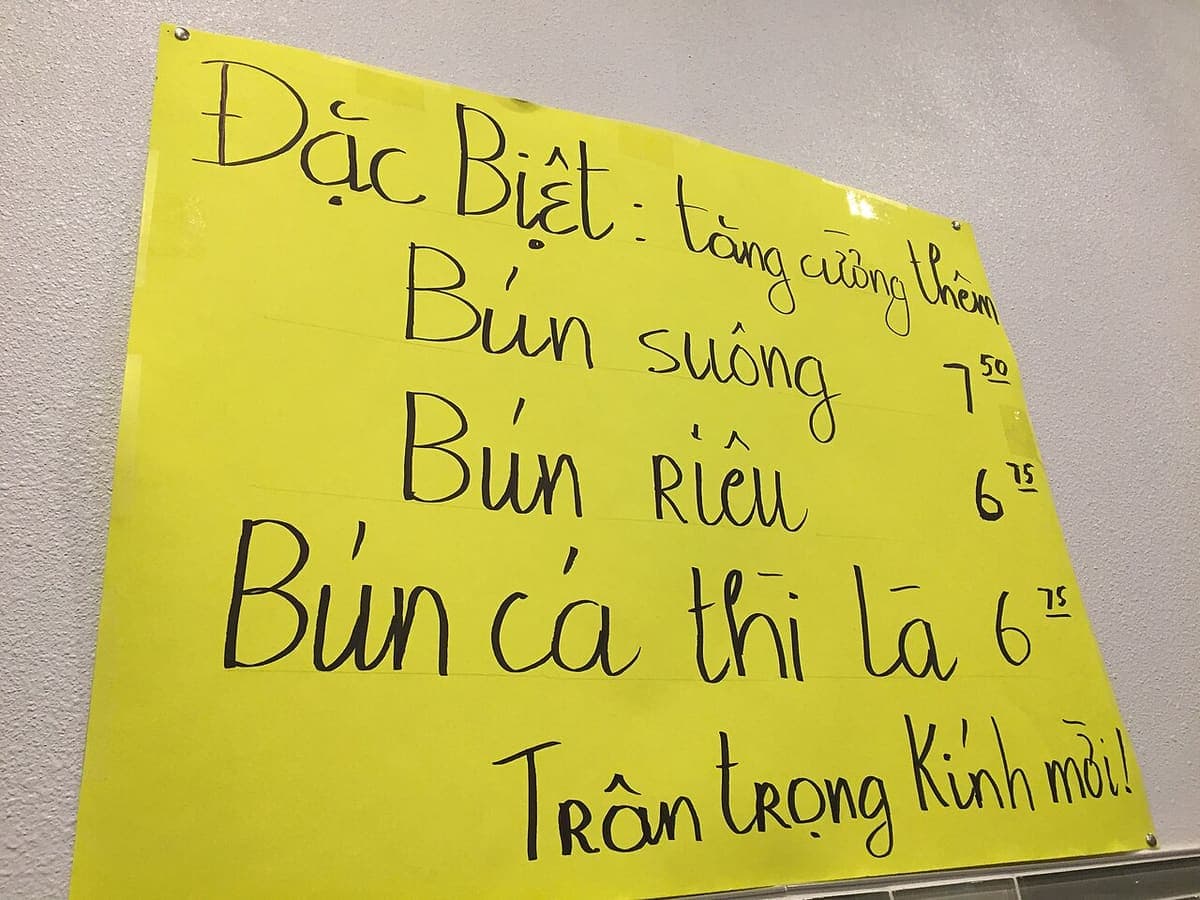 Đặc Biệt : tăng cường thêm
Bún suông 7 50
Bún Riêu 6 75
Bún cá thì là 6 75
Trân trọng Kính mời!